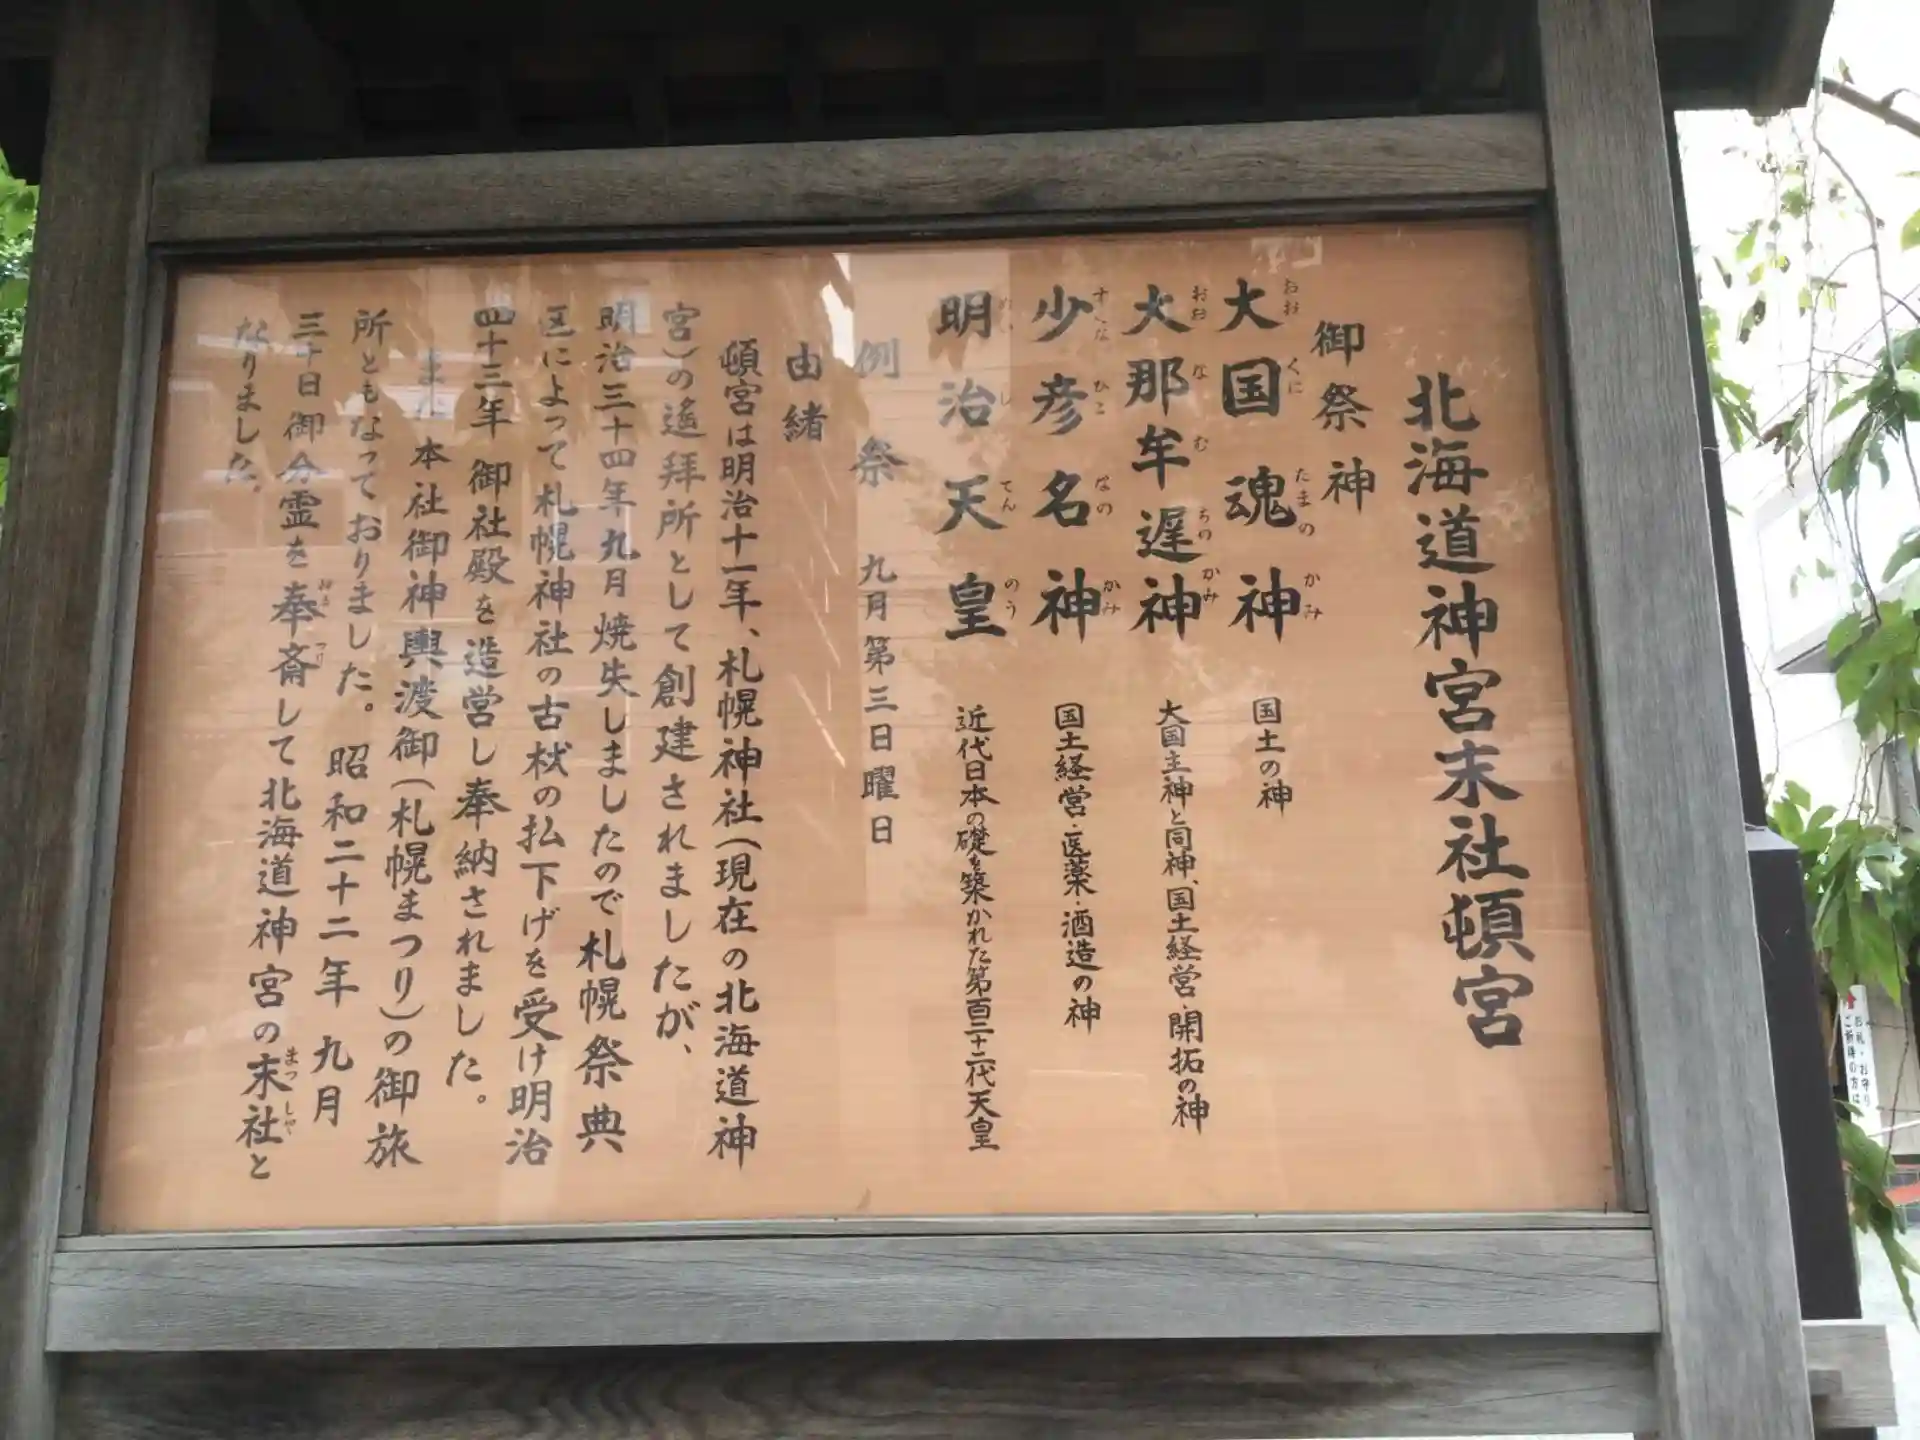 北海道神宮末社頓宮
御祭神
大国魂神 国土の神
大那牟遅神 大国主神と同神、国土経営・開拓の神
少彦名神 国土経営・医薬・酒造の神
明治天皇 近代日本の礎を築かれた第百二十二代天皇
おおくにたまのかみ
おおなむちのかみ
すくなひこなのかみ
めいしてんのう
例祭 九月第三日曜日
由緒
頓宮は明治十一年、札幌神社(現在の北海道神
宮)の遙拝所として創建されましたが、
明治三十四年九月焼失しましたので札幌祭典
区によって札幌神社の古材の払下げを受け明治
四十三年御社殿を造営し奉納されました。
また本社御神輿渡御(札幌まつり)の御旅
所ともなっておりました。昭和二十二年九月
三十日御分霊を奉斎して北海道神宮の末社と
なりました。
まつしや
お札・お守り
ご祈祷の方は